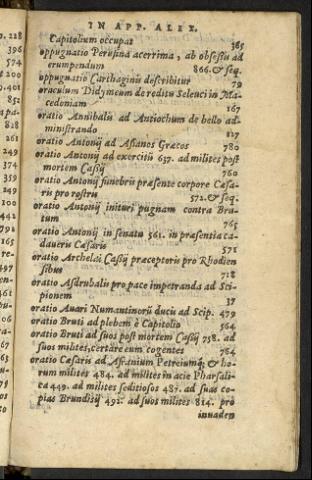 IN APP. ALEX.
Capitolium occupat 365
oppugnatio Perusina acerrima, ab obsessis ad
erumpendum 866. & seq.
oppugnatio Carthaginis describitur 79
oraculum Didymeum de reditu Seleuci in Ma-
cedoniam 167
oratio Annibalis ad Antiochum de bello ad-
ministrando 127
oratio Antonij ad Asianos Græcos 780
oratio Antonij ad exercitũ 637. ad milites post
mortem Cassij 760
oratio Antonij funebris præsente corpore Cæsa-
ris pro rostris 572. & seq.
oratio Antonij inituri pugnam contra Bru-
tum 765
oratio Antonij in senatu 561. in præsentia ca-
daueris Cæsaris 571
oratio Archelai Cassij præceptoris pro Rhodien
sibus 718
oratio Asdrubalis pro pace impetranda ad Sci-
pionem 37
oratio Auari Numantinorũ ducis ad Scip. 479
oratio Bruti ad plebem è Capitolio 564
oratio Bruti ad suos post mortem Cassij 758. ad
suos milites, certare eum cogentes 764
oratio Cæsaris ad Afranium Petreiumq; & ho-
rum milites 484. ad milites in acie Pharsali-
ca 449. ad milites seditiosos 487. ad suas co-
pias Brundisij 492. ad suos milites 814. pro
inuaden